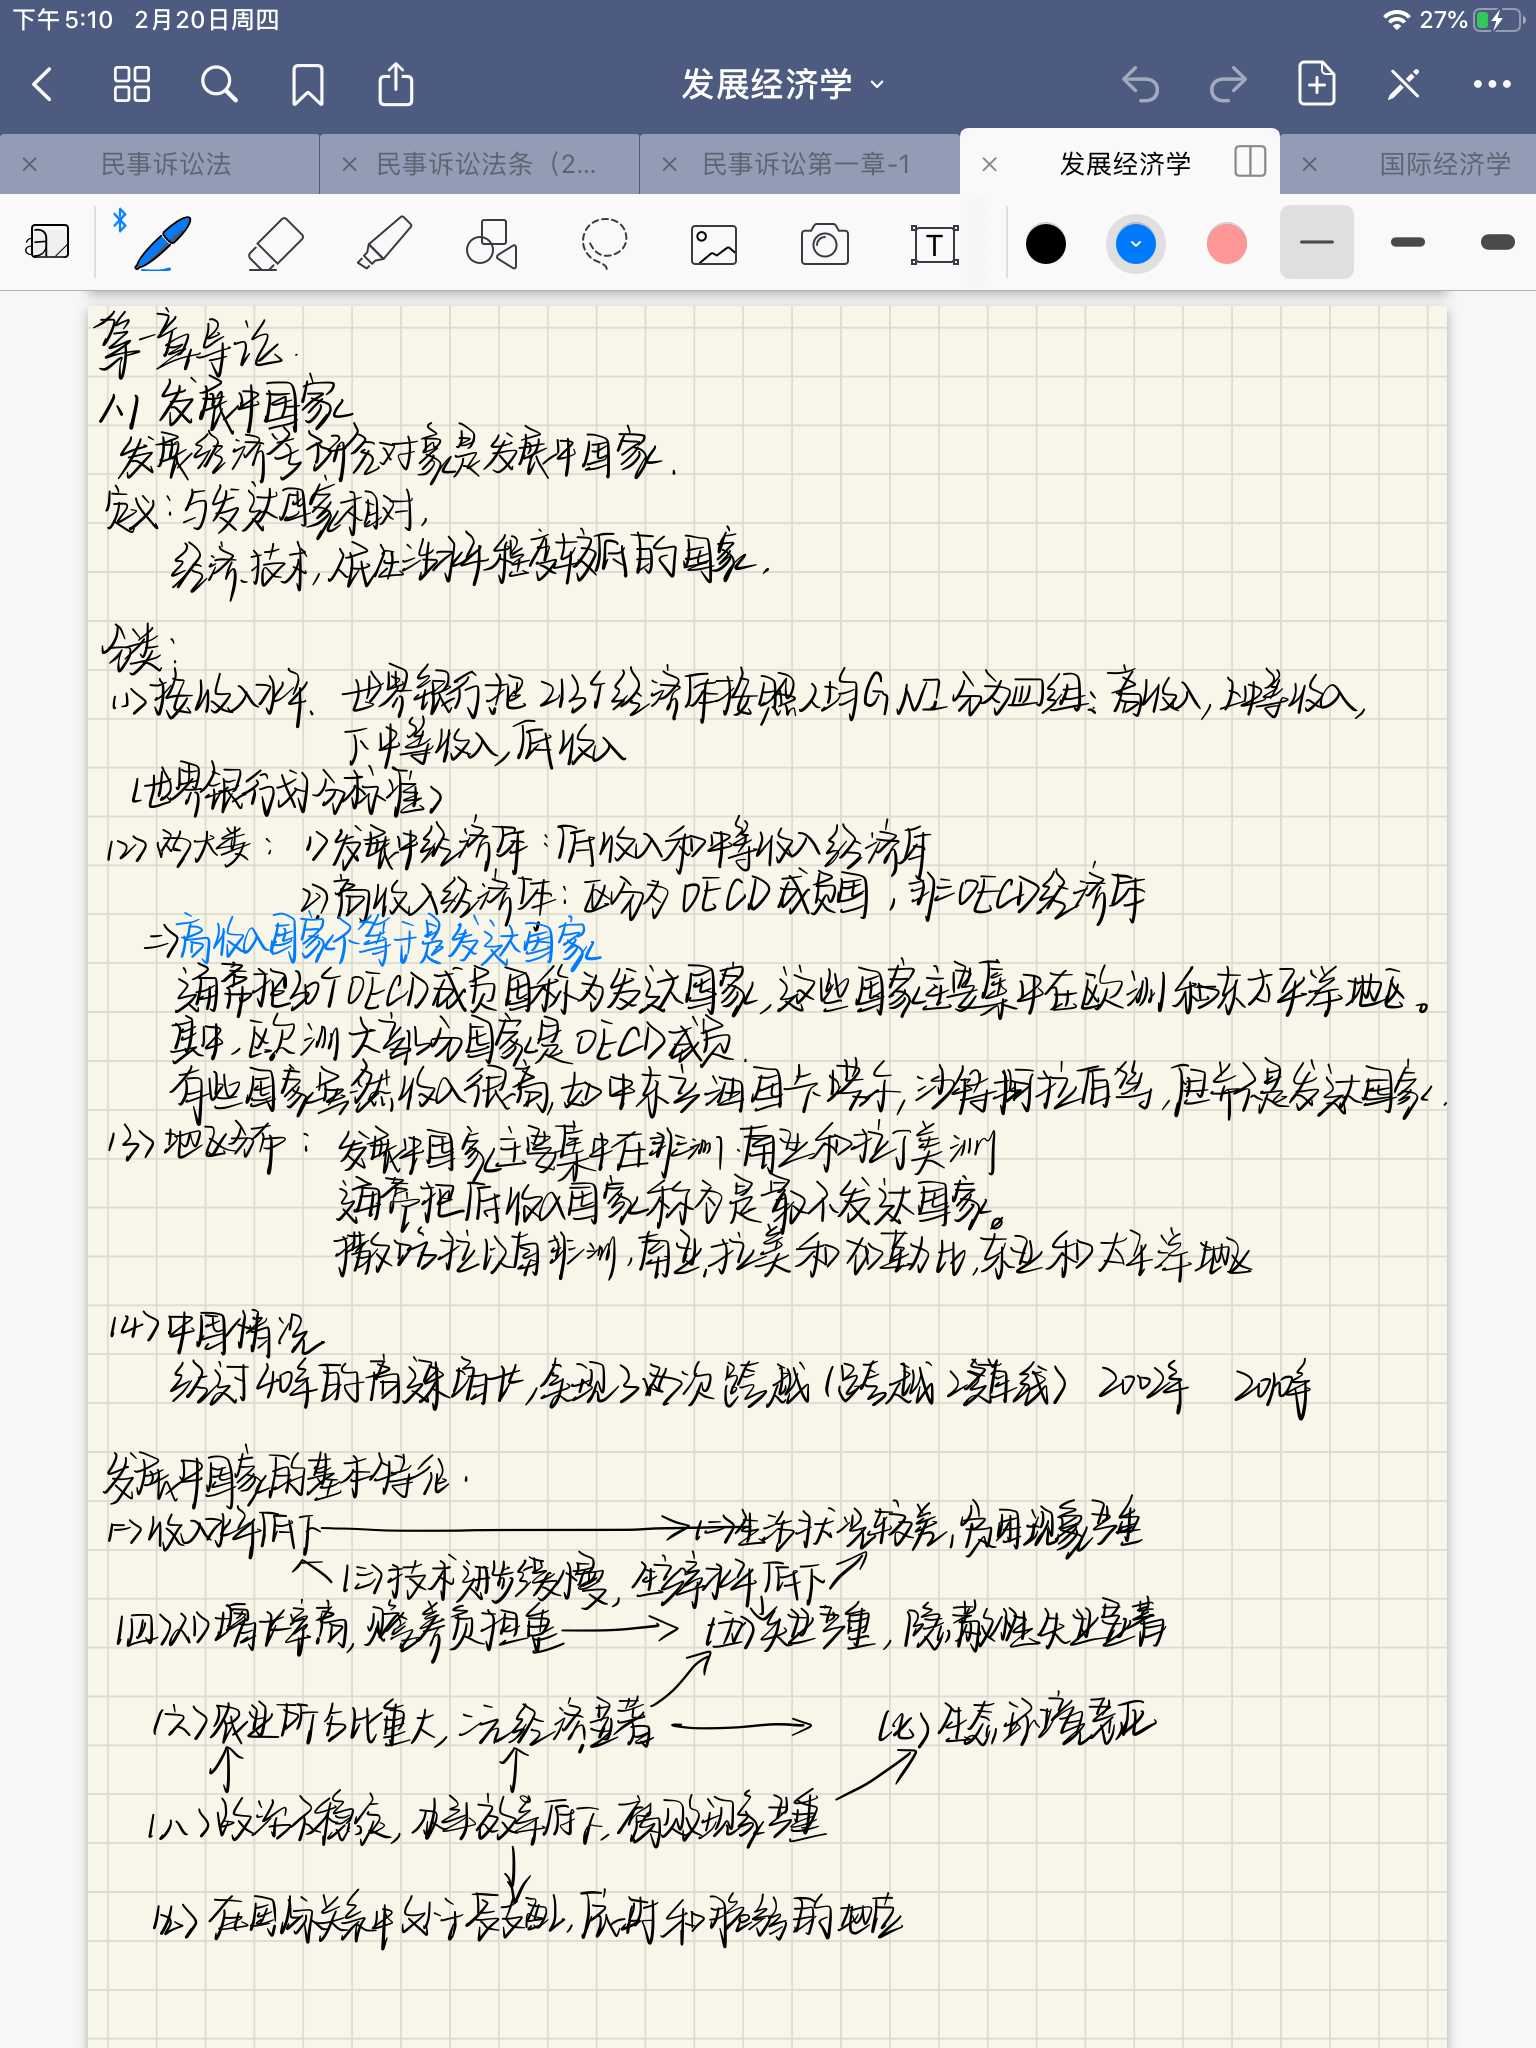 下午5:10 2月20日周四 27%
发展经济学
民事诉讼法 民事诉讼法条（2... 民事诉讼第一章-1 发展经济学 国际经济学
a T
第一章导论.
1.1 发展中国家
发展经济学研究对象是发展中国家.
定义:与发达国家相对,
经济.技术,人民生活水平程度较低的国家.
分类:
(1)按收入水平. 世界银行把213个经济体按照人均GNI分为四组:高收入,上中等收入,
下中等收入,低收入
(世界银行划分标准)
(2)两大类: 1)发展中经济体:低收入和中等收入经济体
2)高收入经济体:区分为OECD成员国,非OECD经济体
=>高收入国家不等于是发达国家
通常把30个OECD成员国称为发达国家,这些国家主要集中在欧洲和东太平洋地区。
其中,欧洲大部分国家是OECD成员.
有些国家虽然收入很高,如中东产油国卡塔尔,沙特阿拉伯等,但并不是发达国家.
(3)地区分布: 发展中国家主要集中在非洲.南亚和拉丁美洲
通常把低收入国家称为是最不发达国家。
撒哈拉以南非洲,南亚,拉美和加勒比,东亚和太平洋地区
(4)中国情况
经过40年的高速增长,实现了两次跨越(跨越2条直线) 2002年 2010年
发展中国家的基本特征.
(一)收入水平低下 (二)生活状况较差,贫困现象严重
(三)技术进步缓慢,生产率水平低下
(四)人口增长率高,赡养负担重 (五)失业严重,隐蔽性失业显著
(六)农业所占比重大,二元经济显著 (七)生态环境恶化
(八)政治不稳定,办事效率低下,腐败现象严重
(九)在国际关系中处于受支配,依附和脆弱的地位